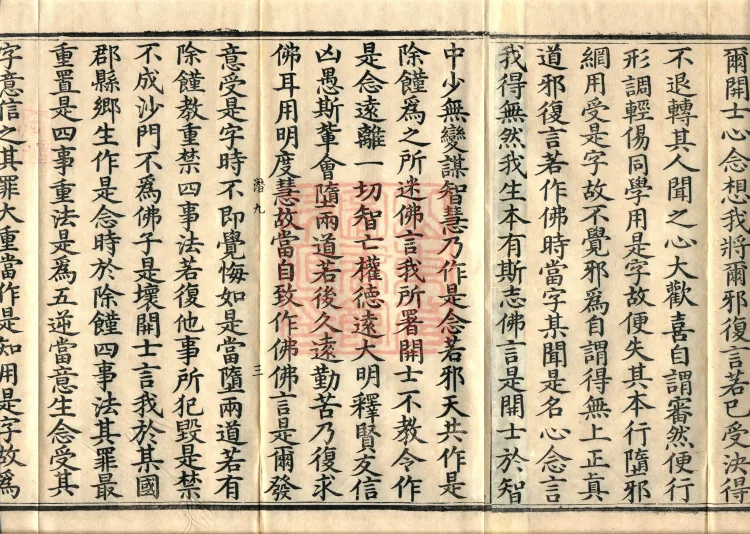 爾開士心念想我將爾邪復言若已受決得
不退轉其人聞之心大歡喜自謂審然便行
形調輕傷同學用是字故便失其本行隨邪
網用受是字故不覺邪為自謂得無上正真
道邪復言若作佛時當字某聞是名心念言
我得無然我生本有斯志佛言是開士於智
中少無變謀智慧乃作是念若邪天共作是
除饉為之所迷佛言我所署開士不教令作
是念遠離一切智亡權德遠大明釋賢友信
凶愚斯輩會隨兩道若後久遠勤苦乃復求
佛耳用明度慧故當自致作佛佛言是爾發
潛九 三
意受是字時不即覺悔如是當隨兩道若有
除饉教重禁四事法若復他事所犯毀是禁
不成沙門不為佛子是壞開士言我於某國
郡縣鄉生作是念時於除饉四事法其罪最
重置是四事重法是為五逆當意生念受其
字意信之其罪大重當作是知用是字故為